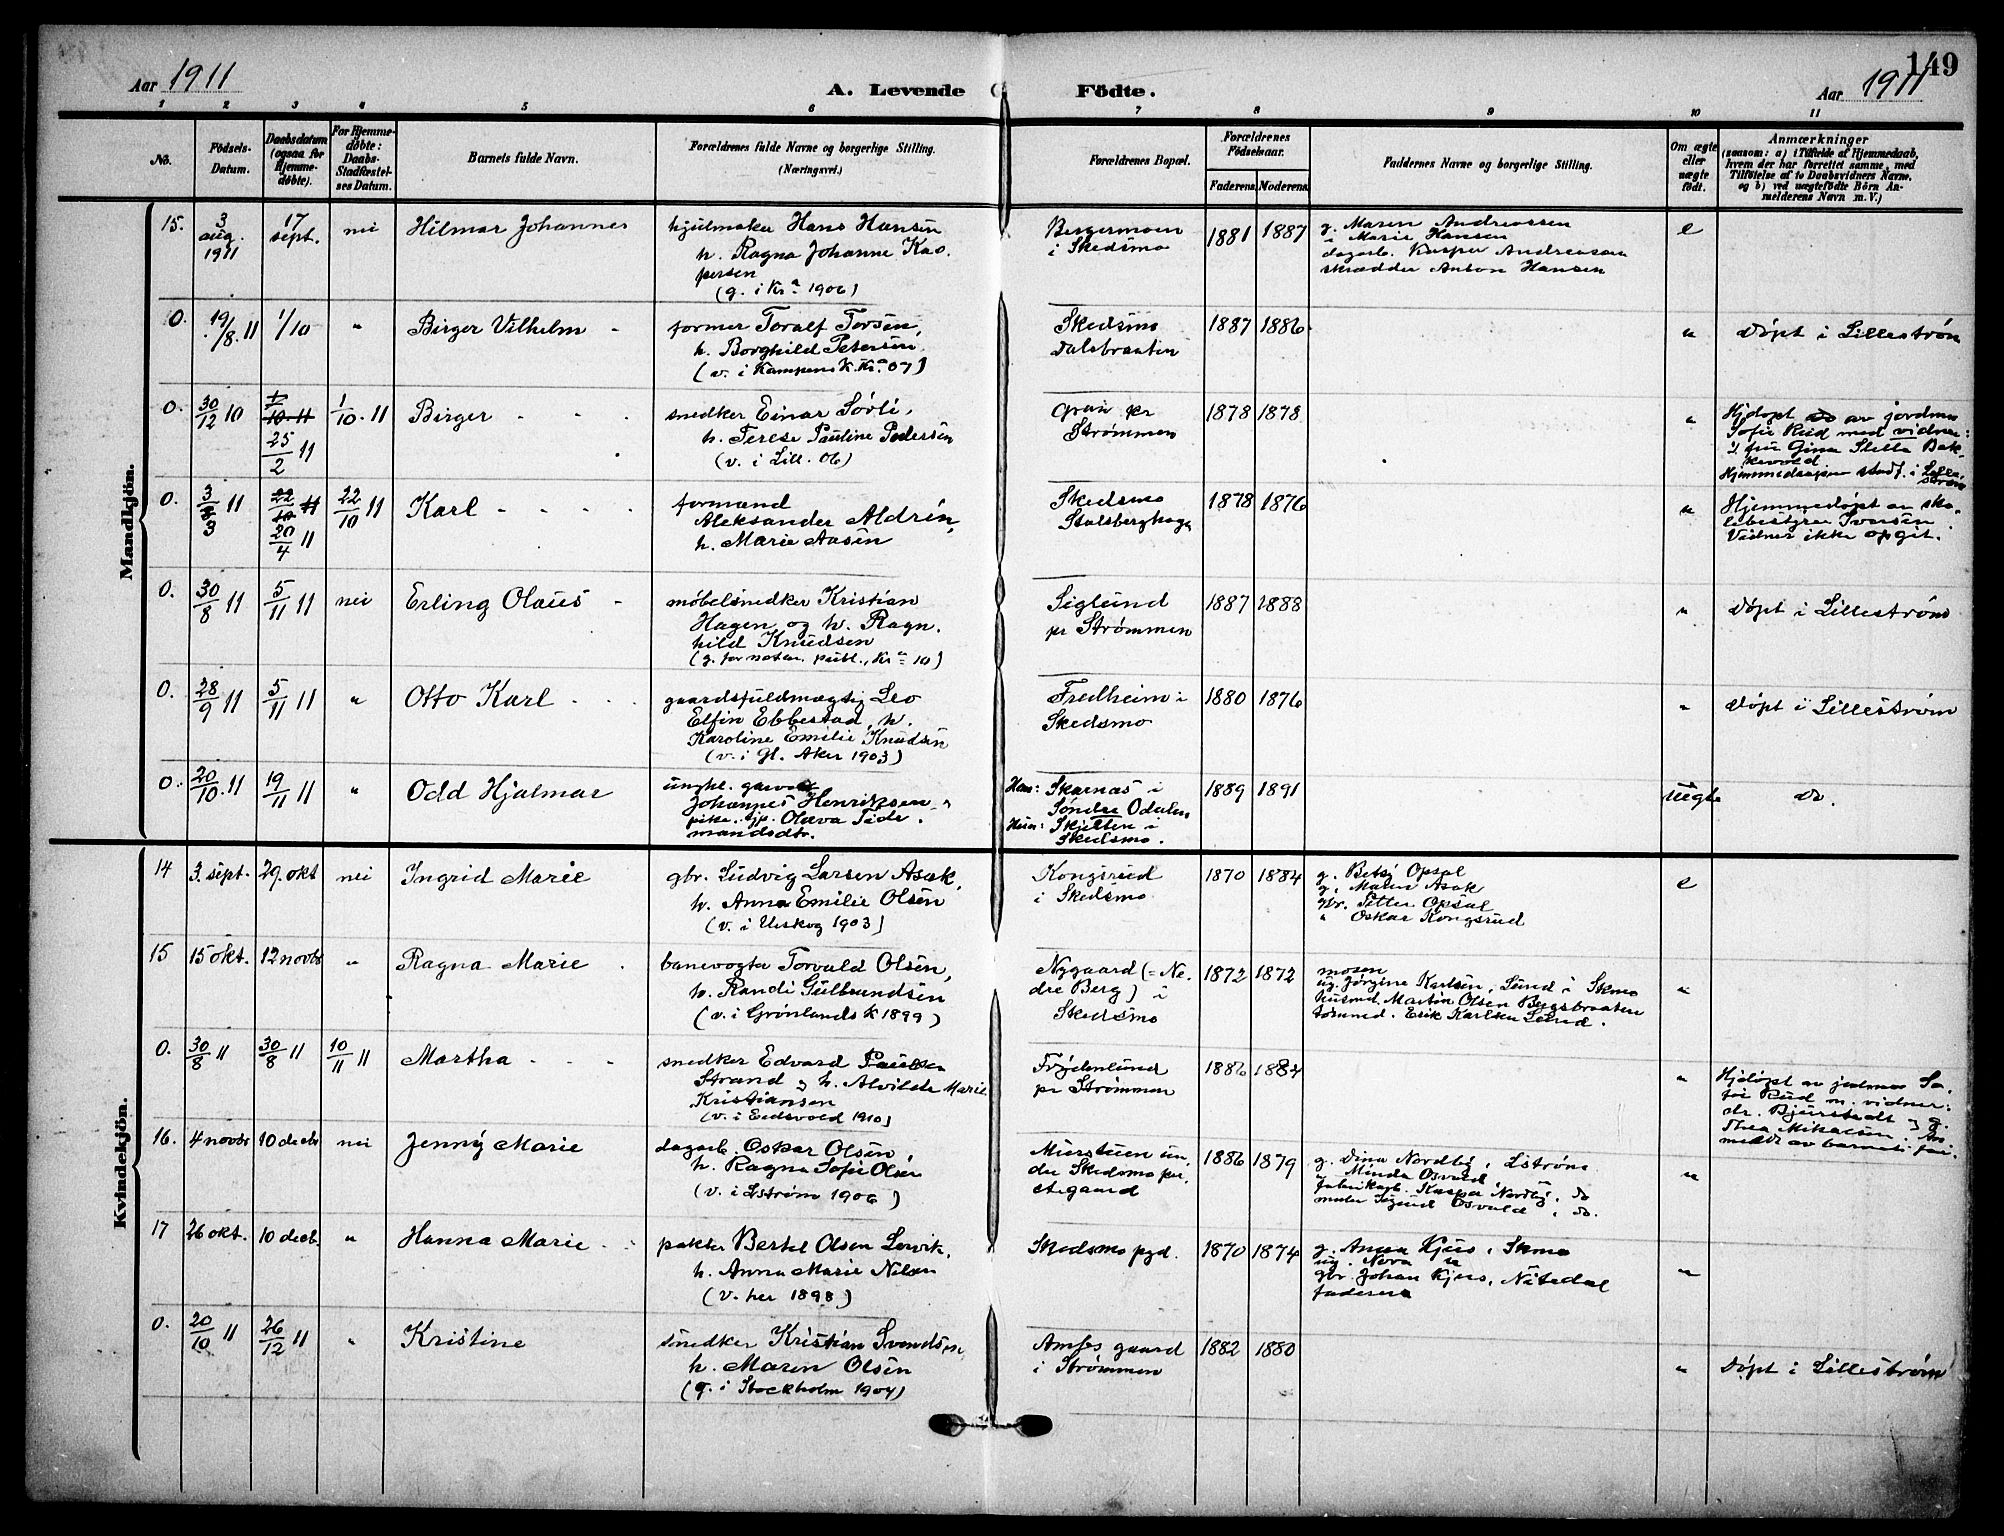 149
Aar 1911
A. Levende Födte.
Aar 1911
1 2 3 4 5 6 7 8 9 10 11
No.
Födsels-Datum.
Daabsdatum (ogsaa for Hjemme-döbte).
For Hjemme-döbte: Daabs-Stadfæstel-ses Datum.
Barnets fulde Navn.
Forældrenes fulde Navne og borgerlige Stilling. (Næringsvei.)
Forældrenes Bopæl.
Forældrenes Födselsaar.
Faderens. Moderens.
Faddernes Navne og borgerlige Stilling.
Om ægte eller uægte födt.
Anmærkninger
(saasom: a) i Tilfælde af Hjemmedaab,
hvem der har forrettet samme, med
Tilföielse af to Daabsvidners Navne.
og b) ved uægtefödte Börn An-
melderens Navn m. V.)
Mandkjön.
15. 3 aug. 1911 17 sept. nei Hilmar Johannes
hjulmaker Hans Hansen
h. Ragna Johanne Kas.
persen
(g. i Kra 1906)
Bergermoen
i Skedsmo
1881 1887
g. Maren Andreassen
i Marie Hansen
dagarb. Kasper Andreassen
skrædder Anton Hansen
e
0. 19/8. 11 1/10 " Birger Vilhelm
former Toralf Torsen,
h. Borghild Petersen
(v. i Kampens K. Kra. 07)
Skedsmo
Dalsbraaten
1887 1886
"
Døpt i Lillestrøm
0. 30/12 10 1/10. 11 25/2 11 1/10. 11 Birger
snedker Einar Sørli,
h. Terese Pauline Pedersen
(v. i Lill. 06)
Gran pr
Strømmen
1878 1878
"
Hjdøpt av jordmor
Sofie Rud med vidner:
Gina Stella Bak-
kevold
Hjemmedaapen stadf. i Lille-
strøm
0. 3/3 11 22/10 11 20/4 11 22/10 11 Karl
formand
Aleksander Aldrin,
h. Marie Aasen
Skedsmo
Stalsberghaga
1878 1876
"
Hjemmedøpt av sko-
lebestyrer Iversen.
Vidner ikke opgit.
0. 30/8 11 5/11 11 nei Erling Olaus
møbelsnedker Kristian
Hagen og h. Ragn.
hild Knudsen
(g. for notar. publ., Kra 10)
Siglund
pr Strømmen
1887 1888
"
Døpt i Lillestrøm
0. 28/9 11 5/11 11 " Otto Karl
gaardsfuldmægtig Leo
Elfin Ebbestad, h.
Karoline Emilie Knudsen
(v. i Gl. Aker 1903)
Fredheim i
Skedsmo
1880 1876
"
Døpt i Lillestrøm
0. 20/10. 11 19/11 11 " Odd Hjalmar
ungkl.
Johannes Henriksen
pike. tjp. Olava Tide.
mandsdtr.
Han: Skarnæs i
Søndre Odalen
Hun: Skjetten i
Skedsmo.
1889 1891
uægte
Do.
Kvindekjön.
14 3. sept. 29. okt nei Ingrid Marie
gbr. Ludvig Larsen Asak,
h. Anna Emilie Olsen
(v. i Urskog 1903)
Kongsrud
i Skedsmo
1870 1884
g. Betsy Opsal
g. Maren Asak
gbr. Petter Opsal
" Oskar Kongsrud
e
15 15 okt. 12 novbr " Ragna Marie
banevogter Torvald Olsen,
h. Randi Gulbrandsen
(v. i Grønlands K 1899)
Nygaard (= Ne-
dre Berg) i
Skedsmo
1872 1872
mosen
ug. Jørgine Karlsen, Lund i Skmo
husmd. Martin Olsen Bergsbraaten
tømmed. Erik Karlsen Lund.
"
0. 30/8 11 30/8 11 10/11 11 Martha
snedker Edvard Paulsen
Strand og h. Alvilde Marie
Kristiansen
(v. i Eidsvold 1910)
Frydenlund
pr Strømmen
1886 1884
"
Hjdøpt av jordmor So-
fie Rud m. vidner:
dr. Bjurstedt og g.
Thea Mikalsen. An-
meldt av barnets far.
16. 4 novbr 10 decbr nei Jenny Marie
dagarb. Oskar Olsen,
h. Ragna Sofie Olsen
(v. i Lstrøm 1906)
Murstuen un.
der Skedsmo pre.
stegaard
1886 1879
g. Dina Nordby, Lstrøm
" Minda Osvald
fabrikarb. Kasper Nordby, do
maler Sigurd Osvald, do.
"
17 26 okt. 10 decb. " Hanna Marie
pakter Bertel Olsen Lervik,
h. Anna Marie Nilsen
(v. her 1898)
Skedsmo pgd.
1870 1874
g. Anna Kjus, Skmo
ug. Nora "
gbr. Johan Kjus, Nitedal
faderen
"
0. 20/10 11 26/12 11 " Kristine
snedker Kristian Svendsen
h. Maren Olsen
(g. i Stockholm 1904)
Amfos gaard
i Strømmen
1882 1880
"
Døpt i Lillestrøm